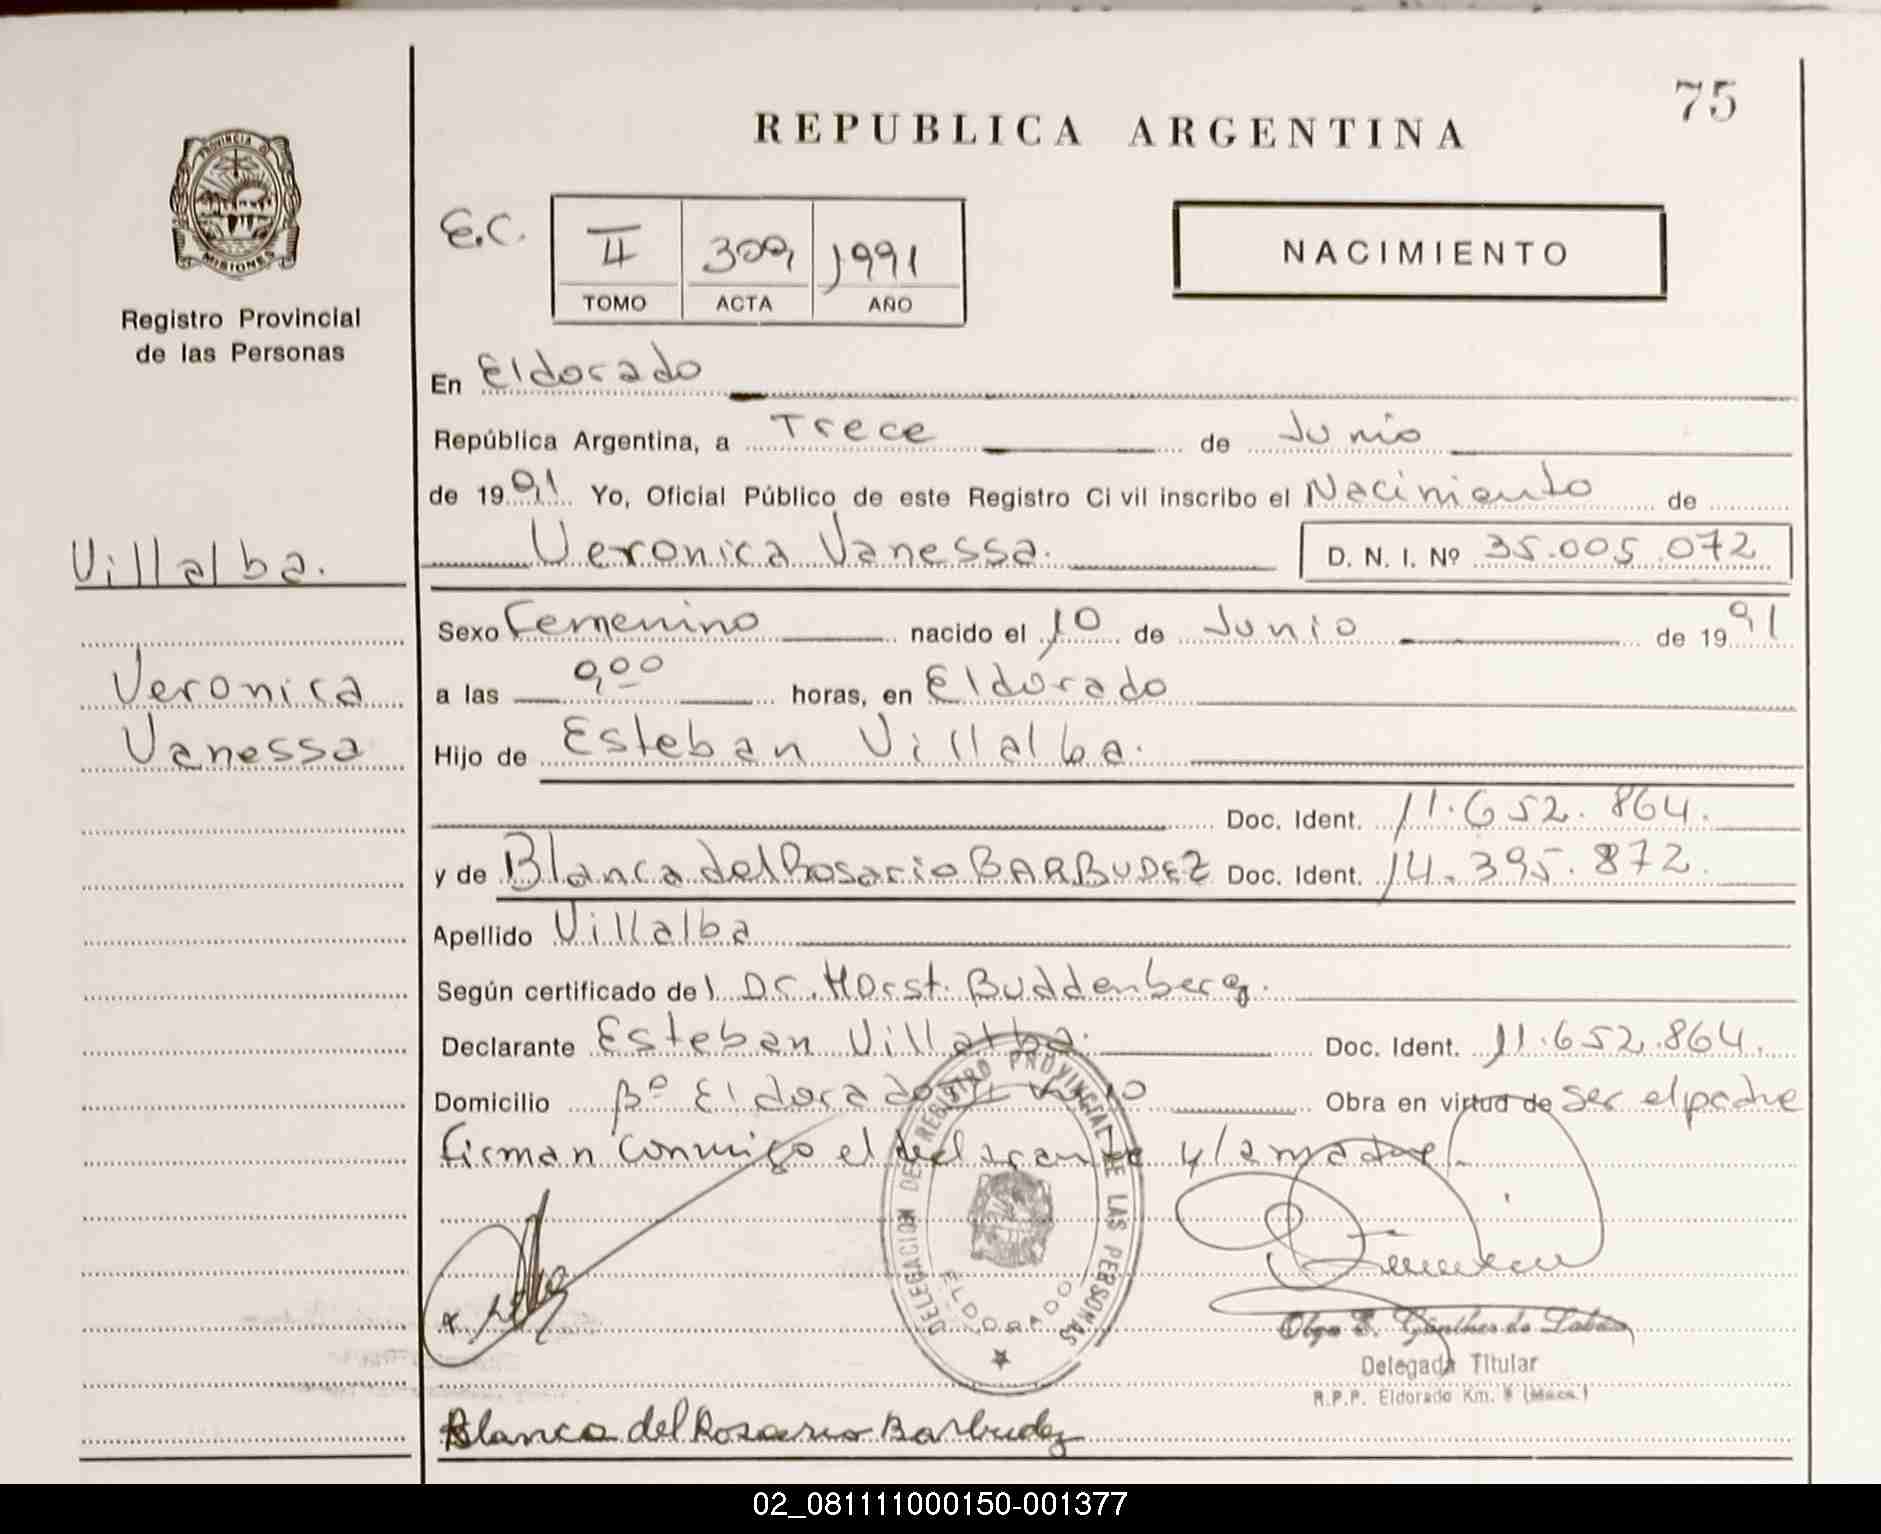 75
REPUBLICA ARGENTINA
PROVINCIA D
MISIONES
Registro Provincial
de las Personas
E.C.
II 309 1991
TOMO ACTA AÑO
NACIMIENTO
En Eldorado
República Argentina, a Trece de Junio
de 1991 Yo, Oficial Público de este Registro Civil inscribo el Nacimiento de
Villalba.
Veronica Vanessa. D. N. I. Nº 35.005.072
Sexo Femenino nacido el 10 de Junio de 1991
Veronica
Vanessa
a las 0,00 horas, en Eldorado
Hijo de Esteban Villalba.
Doc. Ident. 11.652.864.
y de Blanca del Rosario BARBUDEZ Doc. Ident. 14.395.872.
Apellido Villalba
Según certificado del Dr. Horst. Buddenberg.
Declarante Esteban Villalba. Doc. Ident. 11.652.864.
Domicilio Bº Eldorado Obra en virtud de ser el padre
firman conmigo el declarante y la madre/.
DELEGACION DE REGISTRO PROVINCIAL DE LAS PERSONAS
ELDORADO
Olga E. Günther de
Delegada Titular
R.P.P. Eldorado Km. 9 (Mnes.)
Blanca del Rosario Barbudez
02_081111000150-001377